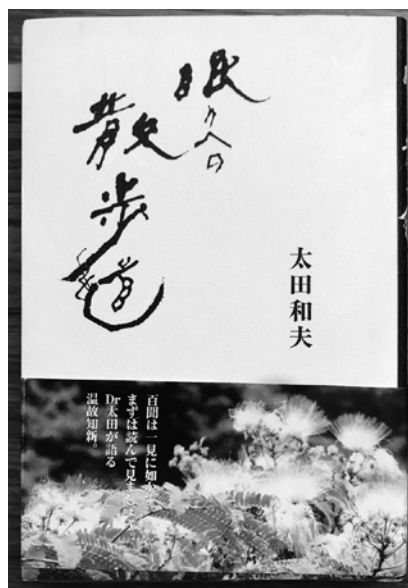 眠りへの
散歩道
太田和夫
百聞は一見に如か
まずは読んで見ま
Dr太田が語る
温故知新。